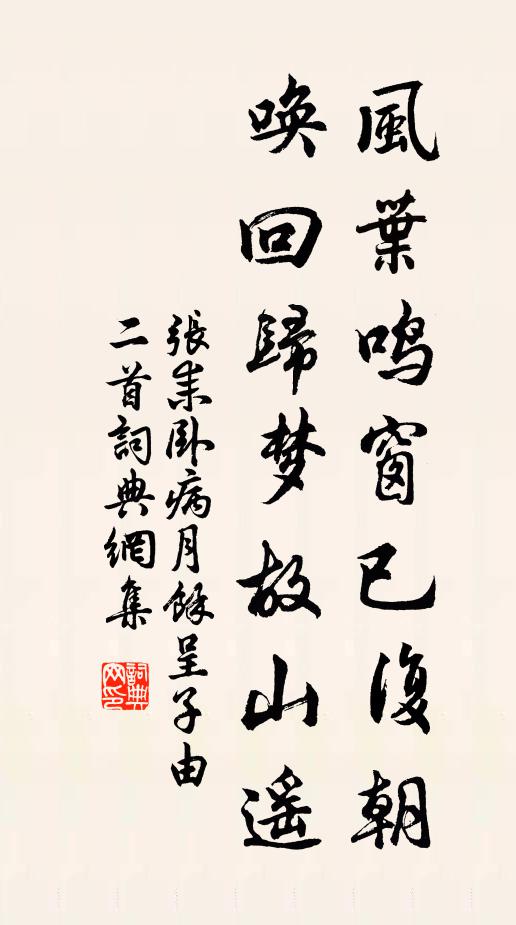 風葉鳴窗已復朝
喚回歸梦故山遥
張耒卧病月餘呈子由
二首詞典網集
詞典网印